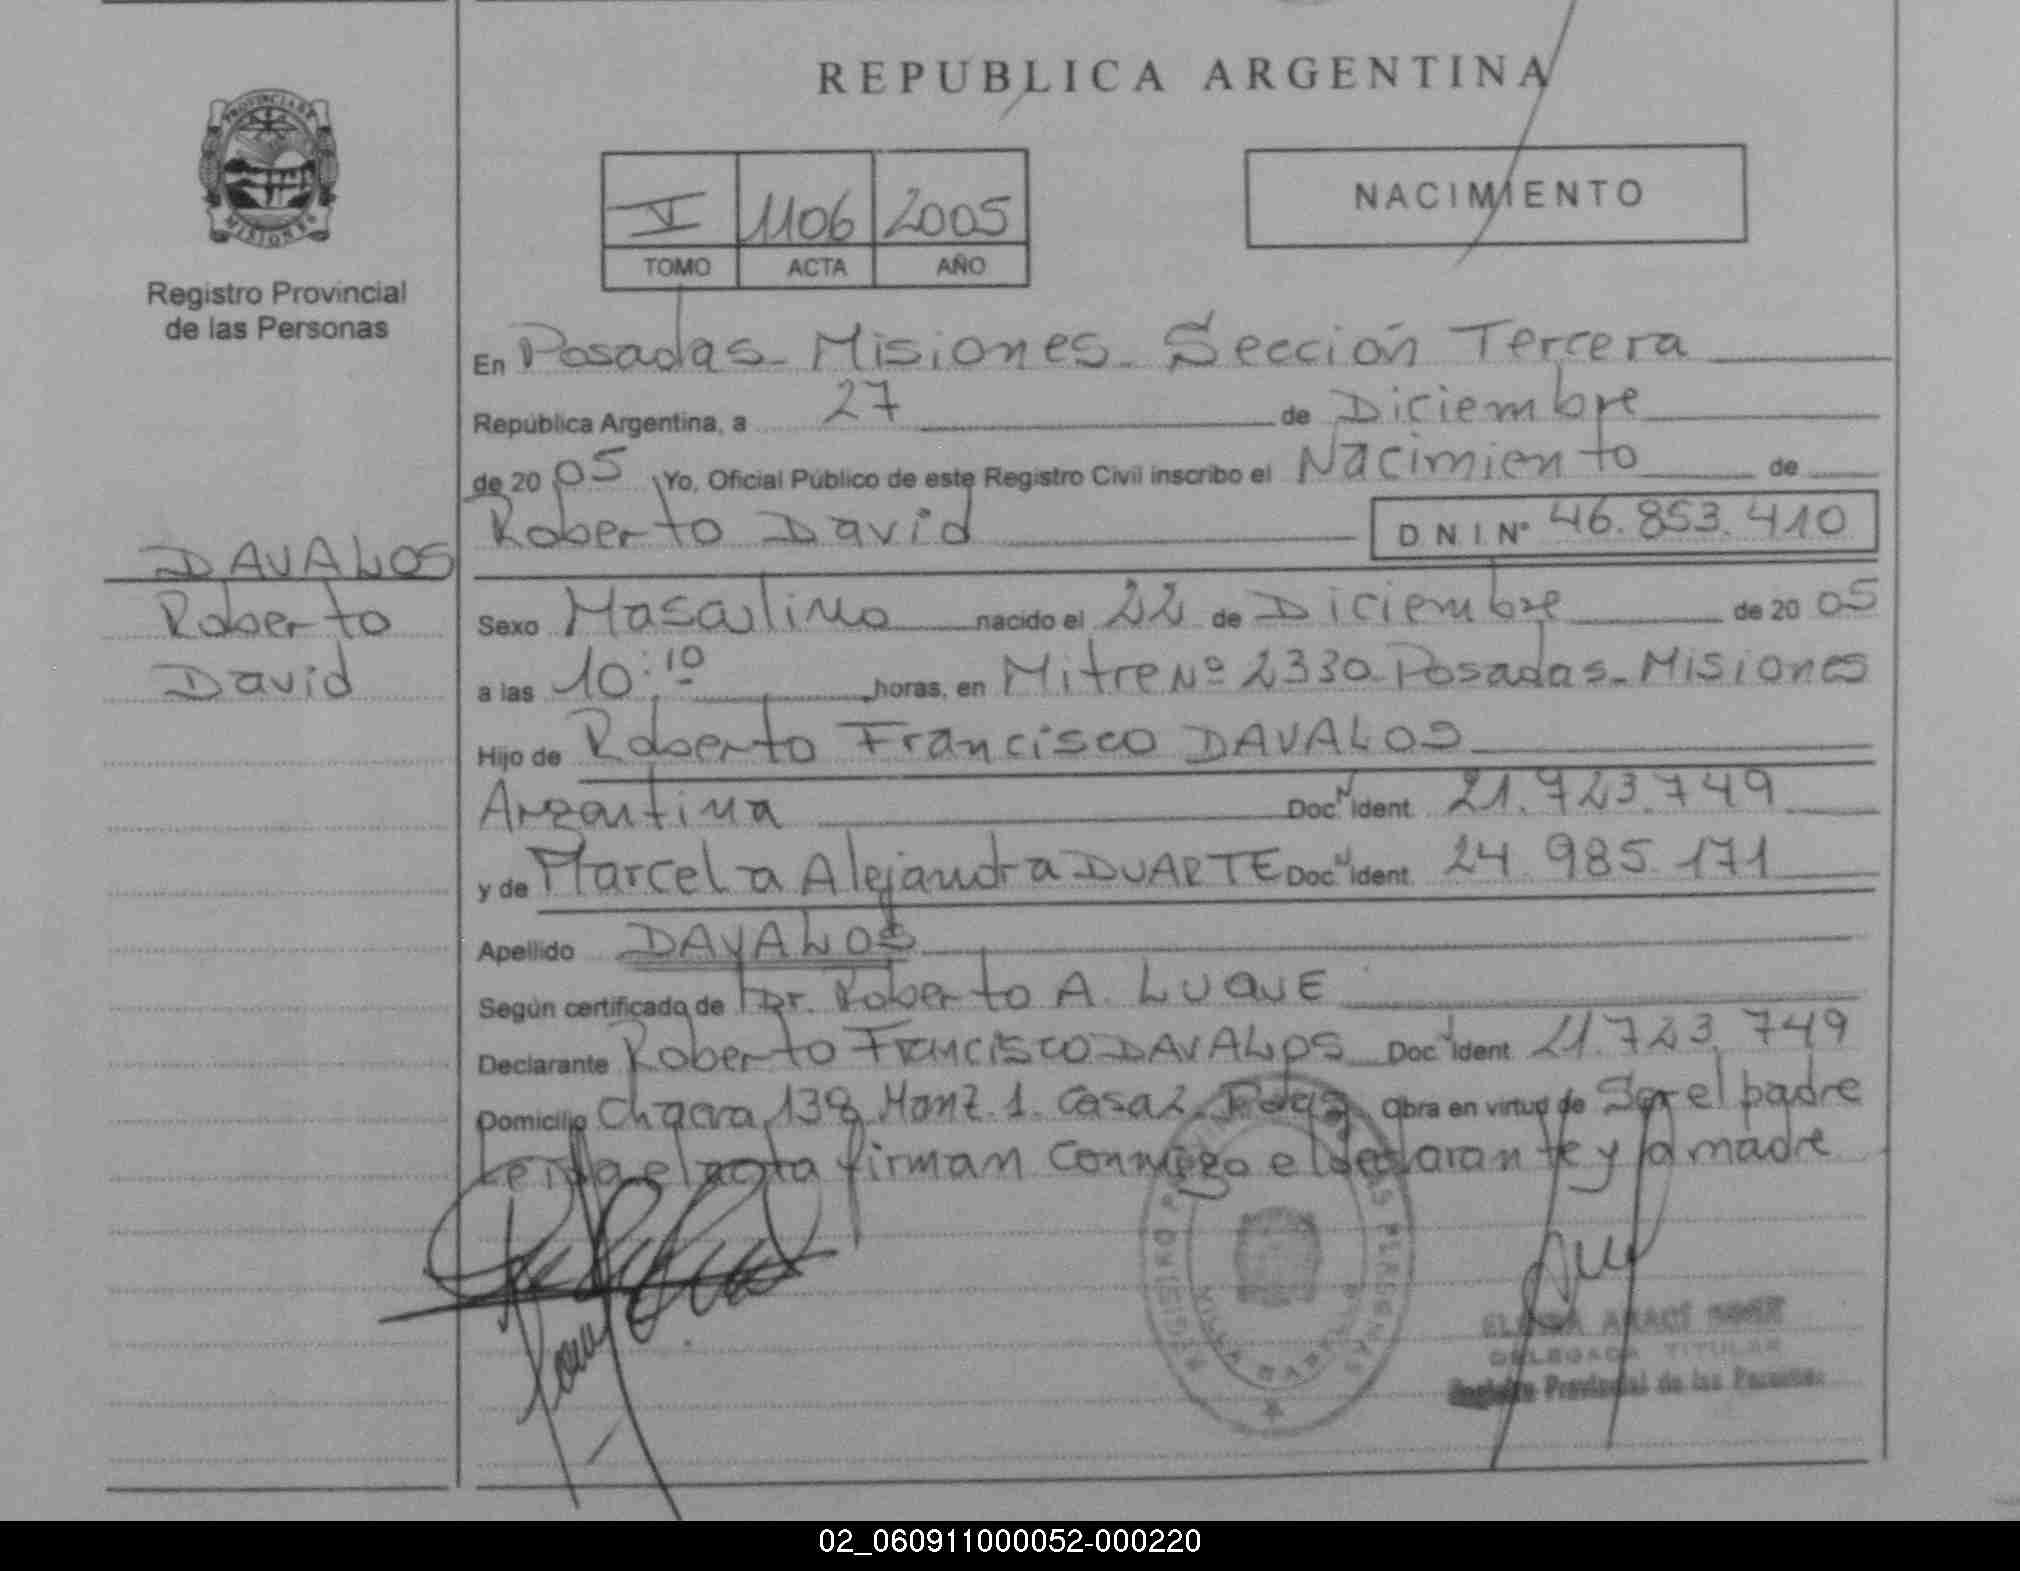 REPUBLICA ARGENTINA
PROVINCIA DE
MISIONES
Registro Provincial
de las Personas
V 1106 2005
TOMO ACTA AÑO
NACIMIENTO
En Posadas - Misiones - Sección Tercera
República Argentina, a 27 de Diciembre
de 20 05 Yo, Oficial Público de este Registro Civil inscribo el Nacimiento de
Roberto David DNI Nº 46.853.410
DAVALOS
Roberto
David
Sexo Masculino nacido el 22 de Diciembre de 20 05
a las 10:10 horas, en Mitre Nº 2330 - Posadas - Misiones
Hijo de Roberto Francisco DAVALOS
Argentina Doc. N Ident. 21.723.749
y de Marcela Alejandra DUARTE Doc. N Ident. 24.985.171
Apellido DAVALOS
Según certificado de Dr. Roberto A. LUQUE
Declarante Roberto Francisco DAVALOS Doc. N Ident. 21.723.749
Domicilio Chacra 138 Manz. 1. Casa 2. Pdas. Obra en virtud de Ser el padre
Leida el acta firman conmigo el declarante y la madre
REGISTRO PROVINCIAL DE LAS PERSONAS
DELEGADA TITULAR
Registro Provincial de las Personas
02_060911000052-000220